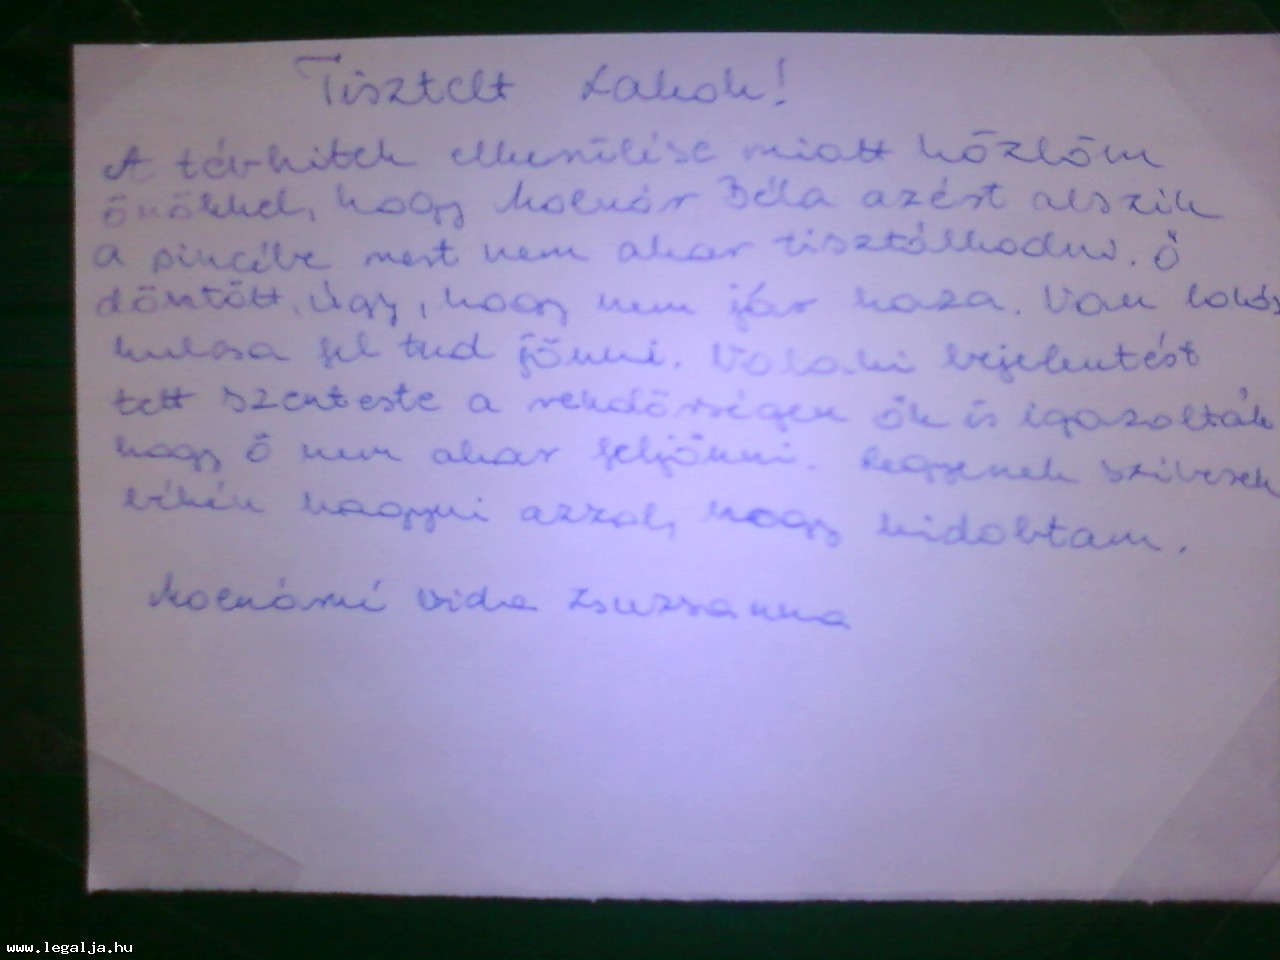 Tisztelt Lakok!
A tévhitek elkerülése miatt közlöm
önökkel, hogy Molnár Béla azért alszik
a pincébe mert nem akar tisztálkodni. Ő
döntött, úgy, hogy nem jár haza. Van lakás
kulcsa fel tud jönni. Valaki bejelentést
tett szenteste a rendőrségen ők is igazolták
hogy ő nem akar feljönni. Legyenek szívesek
békén hagyni azzal, hogy kidobtam.
Molnárné Vida Zsuzsanna
www.legalja.hu